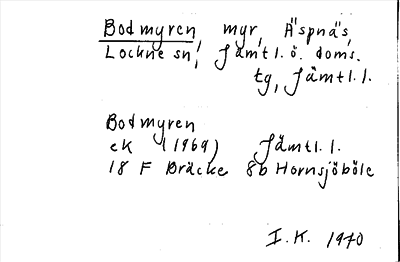 Bodmyren, myr, Äspnäs,
Lockne sn, Jämtl. ö. doms.
tg, Jämtl. l.
Bodmyren
ek (1969) Jämtl. l.
18 F Bräcke 8b Hornsjöböle
I. K. 1970